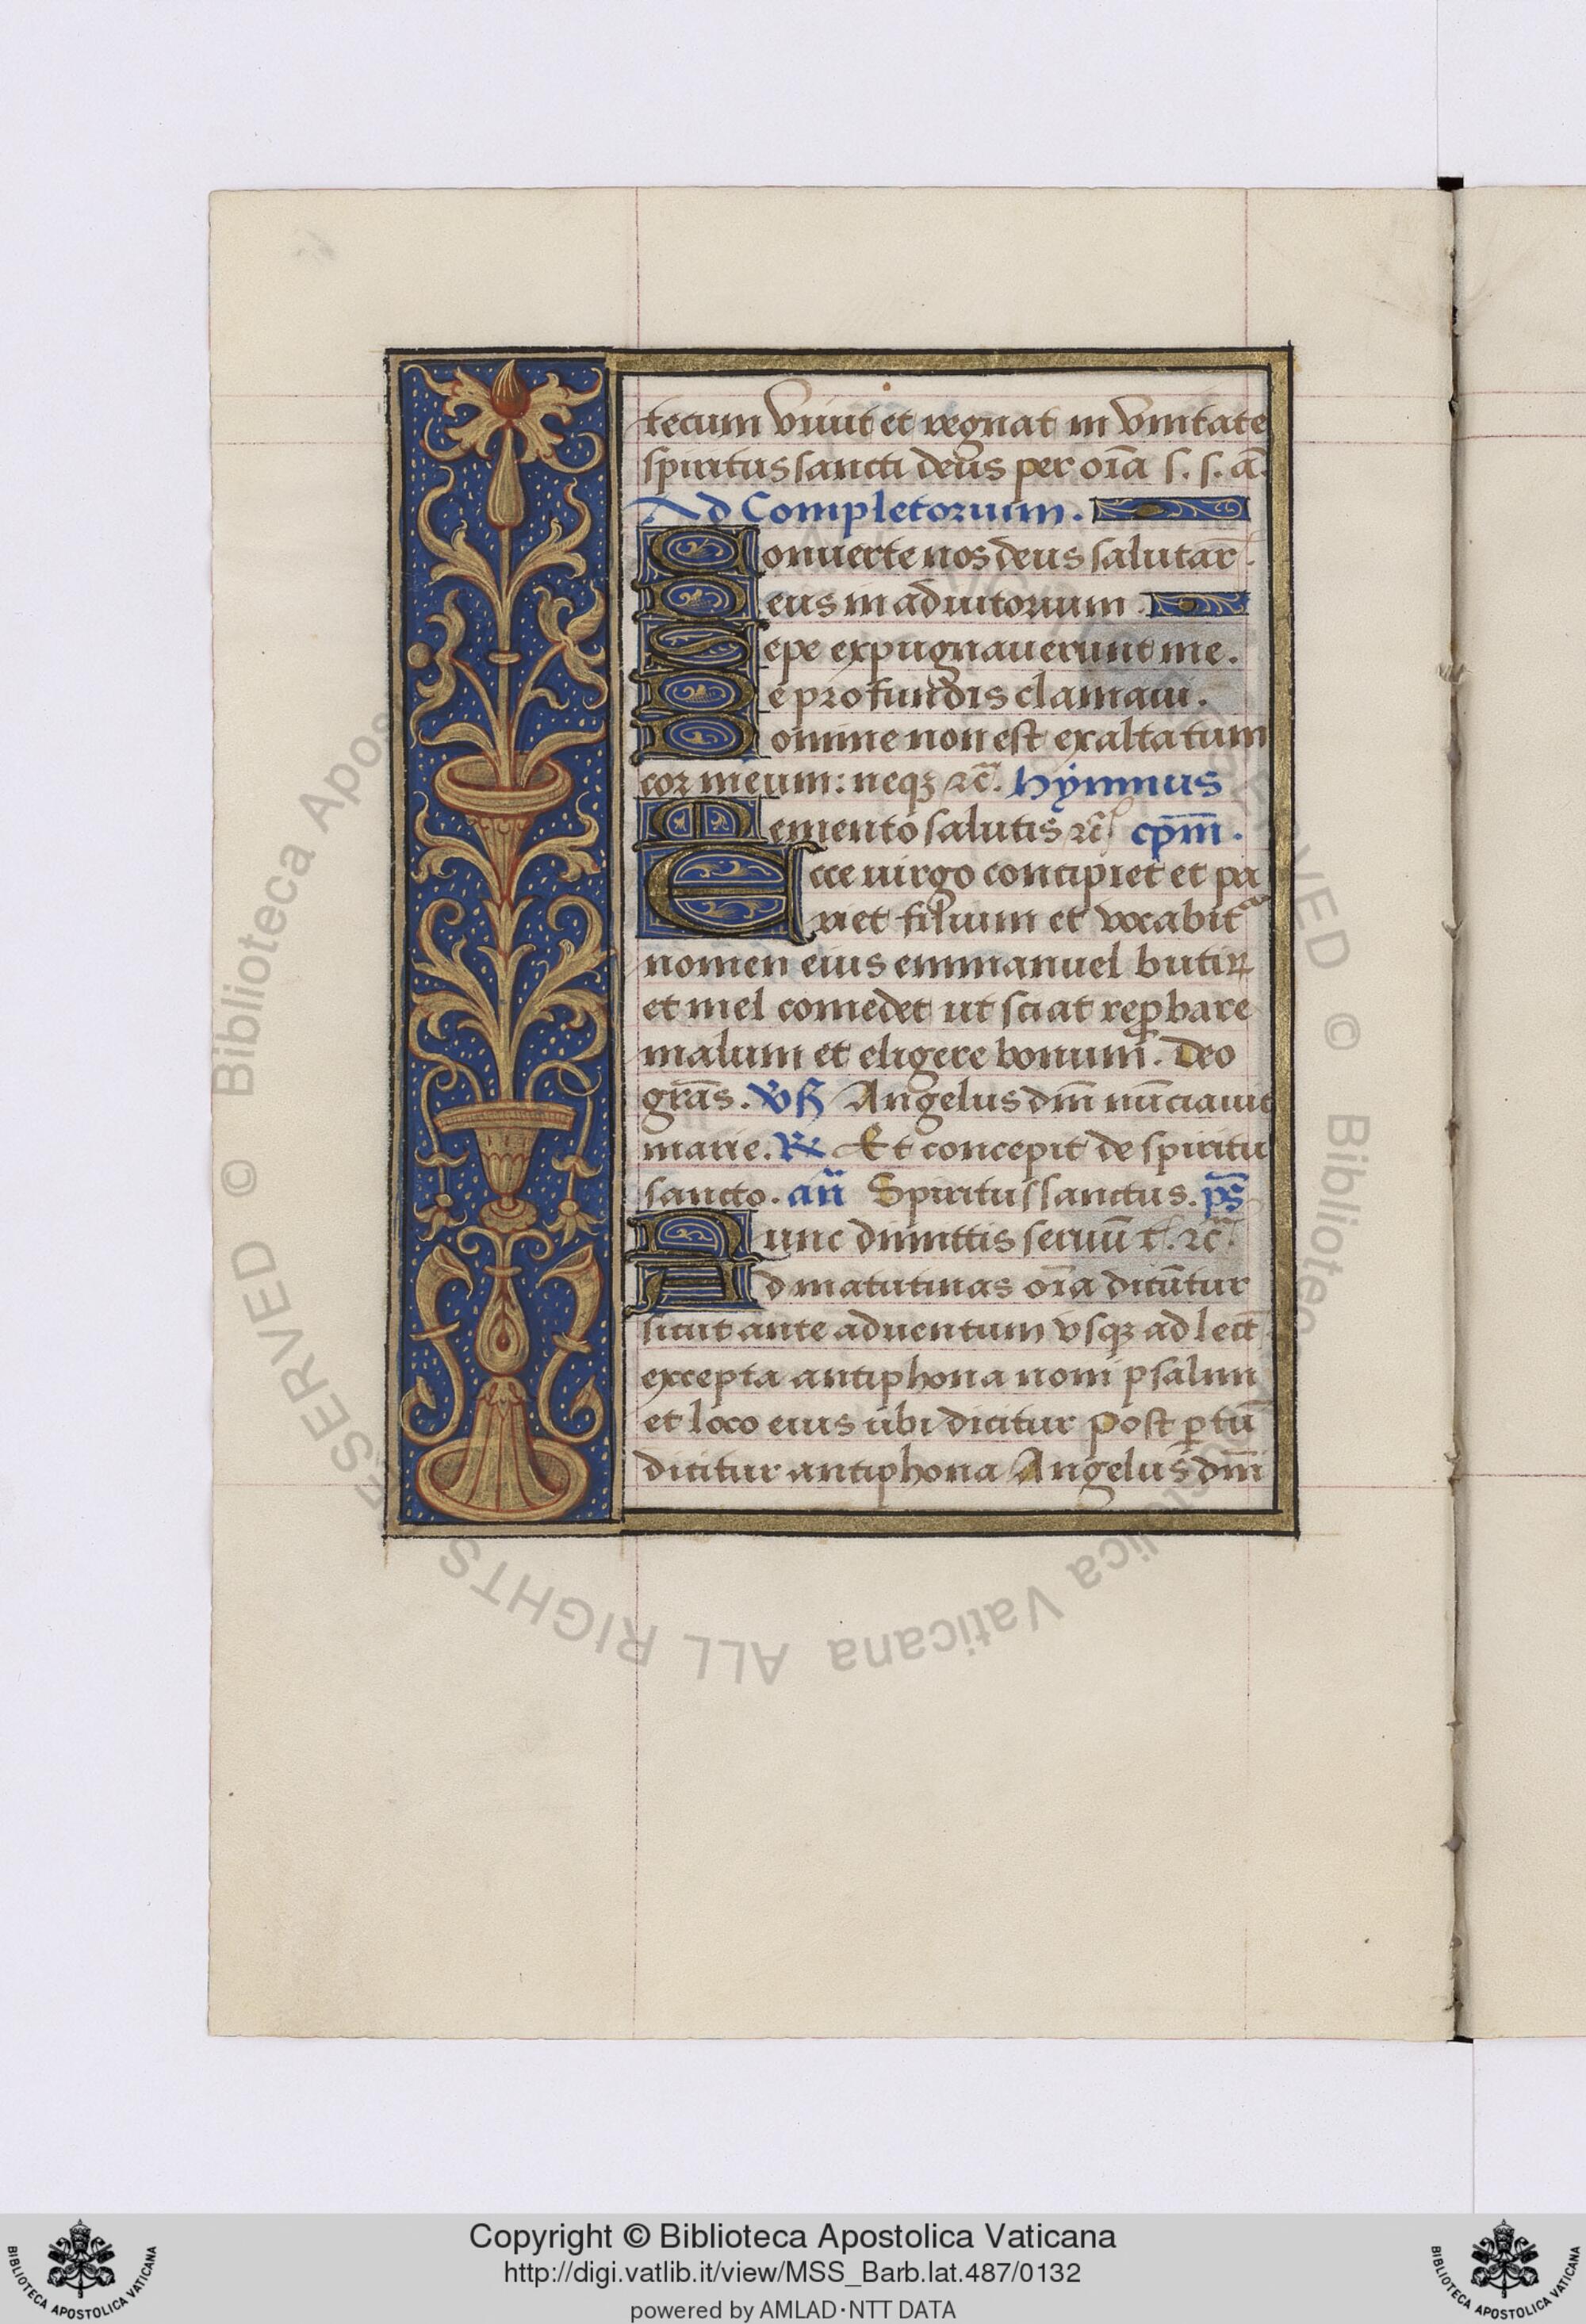 tecum viuit et regnat in vnitate
spiritus sancti deus per oīa s. s. ā.
Ad Completorium.
Conuerte nos deus salutar̄.
Deus in adiutorium.
Sepe expugnauerunt me.
De profundis clamaui.
Domine non est exaltatum
cor meum: neqꝫ ⁊c̄. hẏmnus
Memento salutis ⁊c̄ cpm̄.
Ecce uirgo concipiet et pa
riet filium et vocabit᷑
nomen eius emmanuel butiꝝ
et mel comedet ut sciat reꝓbare
malum et eligere bonum. Deo
grās. v̄s̄ Angelus dn̄i nūciauit
marie. ℟ Et concepit de spiritu
sancto. an̄ Spiritus sanctus. ps̄
Nunc dimittis seruū t. ⁊c̄.
Ad matutinas oīa dicūtur
sicut ante aduentum vsqꝫ ad lect̄
excepta antiphona noni psalmi
et loco eius ubi dicitur post ꝑtū
dicitur antiphona Angelus dn̄i
© Biblioteca Apostolica Vaticana ALL RIGHTS RESERVED
Copyright © Biblioteca Apostolica Vaticana
http://digi.vatlib.it/view/MSS_Barb.lat.487/0132
powered by AMLAD·NTT DATA
BIBLIOTECA APOSTOLICA VATICANA
BIBLIOTECA APOSTOLICA VATICANA